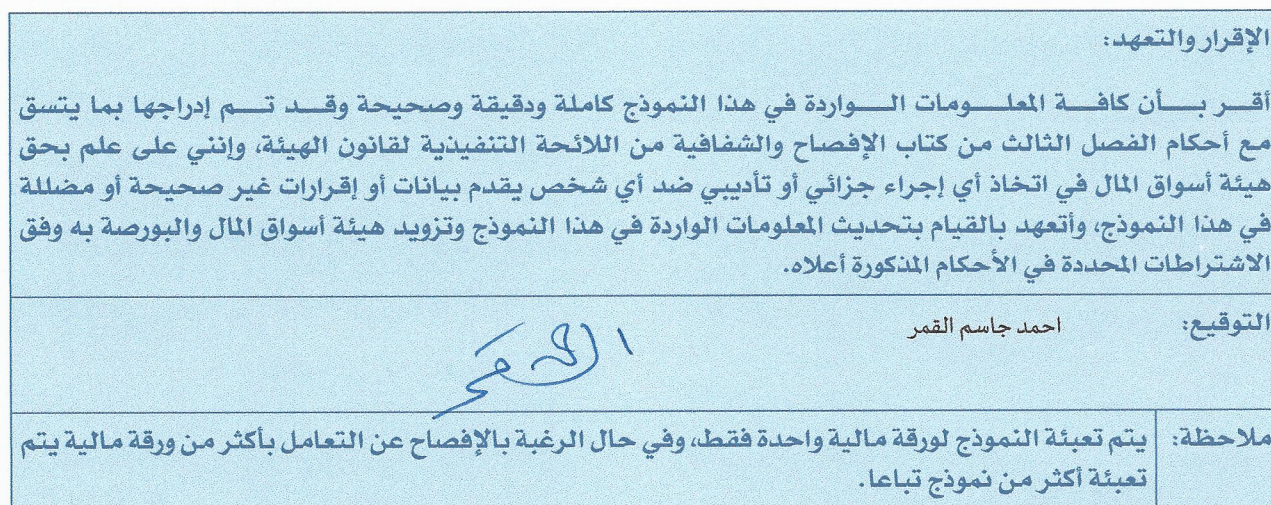 الإقرار والتعهد:
أقر بأن كافة المعلومات الواردة في هذا النموذج كاملة ودقيقة وصحيحة وقد تم إدراجها بما يتسق
مع أحكام الفصل الثالث من كتاب الإفصاح والشفافية من اللائحة التنفيذية لقانون الهيئة، وإنني على علم بحق
هيئة أسواق المال في اتخاذ أي إجراء جزائي أو تأديبي ضد أي شخص يقدم بيانات أو إقرارات غير صحيحة أو مضللة
في هذا النموذج، وأتعهد بالقيام بتحديث المعلومات الواردة في هذا النموذج وتزويد هيئة أسواق المال والبورصة به وفق
الاشتراطات المحددة في الأحكام المذكورة أعلاه.
التوقيع: احمد جاسم القمر
ملاحظة: يتم تعبئة النموذج لورقة مالية واحدة فقط، وفي حال الرغبة بالإفصاح عن التعامل بأكثر من ورقة مالية يتم
تعبئة أكثر من نموذج تباعا.